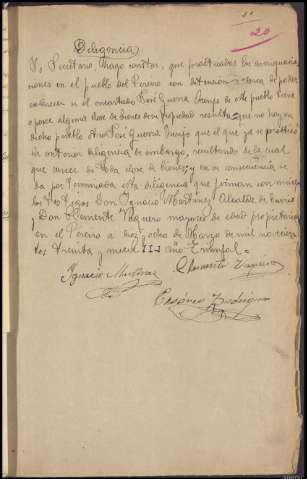 20
Diligencia
Yo, Secretario, hago constar, que practicadas las averiguaciones
en el pueblo del Pereiro con detención a de poder
esclarecer si el encartado José Guerra Crespo de este pueblo tiene
o posee alguna clase de bienes de su propiedad resulta que no hay en
dicho pueblo otro José Guerra Crespo que el que ya se practicó
en anterior diligencia de embargo, resultando de la cual
que carece de toda clase de bienes y en su consecuencia se
da por terminada esta diligencia que firman con migo
los testigos Don Ignacio Martínez, Alcalde de barrio
y Don Clemente Vaquero mayores de edad propietarios
en el Pereiro a diez y ocho de Marzo de mil novecien
tos treinta y nueve III año Triunfal.
Ignacio Martínez Clemente Vaquero
Rodríguez